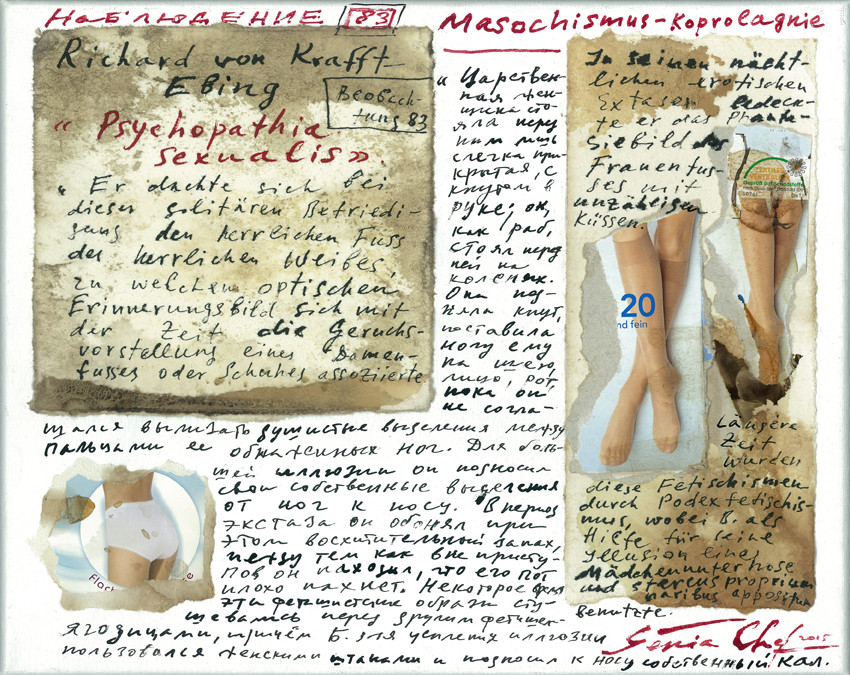 НАБЛЮДЕНИЕ 83
Masochismus-Koprolagnie
Richard von Krafft
Ebing
Beobach-
tung 83
« Psychopathia
sexualis».
„ Er dachte sich bei
dieser solitären Befriedi-
gung den herrlichen Fuss
des herrlichen Weibes,
zu welchem optischen
Erinnerungsbild sich mit
der Zeit die Geruchs-
vorstellung eines Damen-
fusses oder Schuhes assoziierte
„ Царствен-
ная жен-
щина сто-
яла перед
ним лишь
слегка при-
крытая, с
кнутом в
руке; он,
как раб,
стоял перед
ней на
коленях.
Она под-
няла кнут,
поставила
ногу ему
на шею,
лицо, рот,
пока он
не согла-
шался вылизать душистые выделения между
пальцами ее обнаженных ног. Для боль-
шей иллюзии он подносил
свои собственные выделения
от ног к носу. В период
экстаза он обонял при
этом восхитительный запах,
между тем как вне присту-
пов он находил, что его пот
плохо пахнет. Некоторое время
эти фетишистские образы сту-
шевались перед другим фетишем-
ягодицами, причём Б. для усиления иллюзии
пользовался женскими штанами и подносил к носу собственный кал.
In seinen nächt-
lichen erotischen
Extasen bedeck-
te er das Phanta-
siebild des
Frauenfus-
ses mit
unzähligen
Küssen.
20
nd fein
Längere
Zeit
wurden
diese Fetischismen
durch Podexfetischis-
mus, wobei B. als
Hilfe für seine
Illusion eine
Mädchenunterhose
und stercus proprium
naribus appositum
benutzte.
Senia Chef 2015